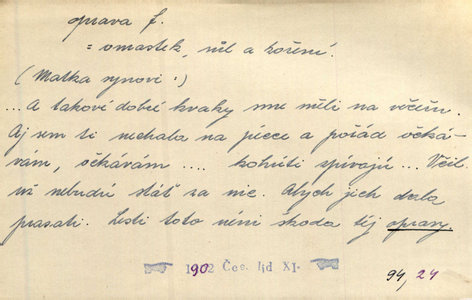 oprava f.
= omastek, sůl a koření.
(Matka synovi:)
... A takové dobré kvaky sme měli na večeřu.
Aj sem ti nechala na piece a pořád očká-
vám, očkávám .... kohúti spívajú ... Včil
už nebudú stát za nic. Abych jich dala
prasati. Lesti toto néni škoda téj opravy.
1902 Čes. lid XI-
94, 24